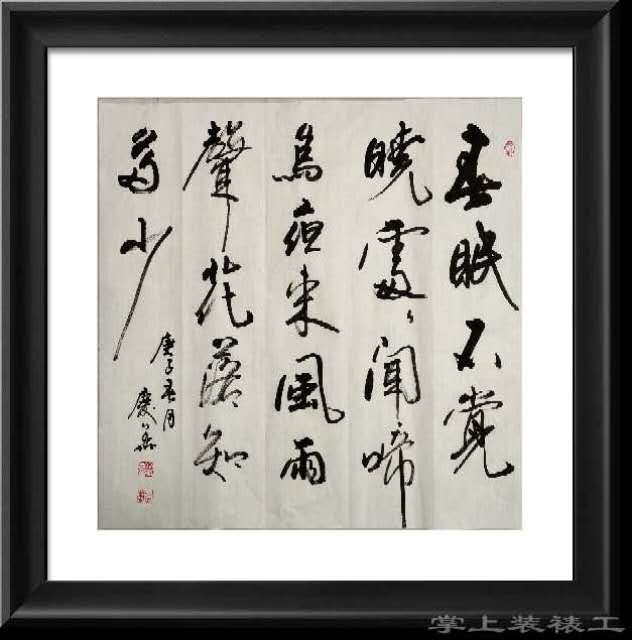 春眠不覺
曉處〻聞啼
鳥夜來風雨
聲花落知
多少
庚子春月
慶
掌上装裱工